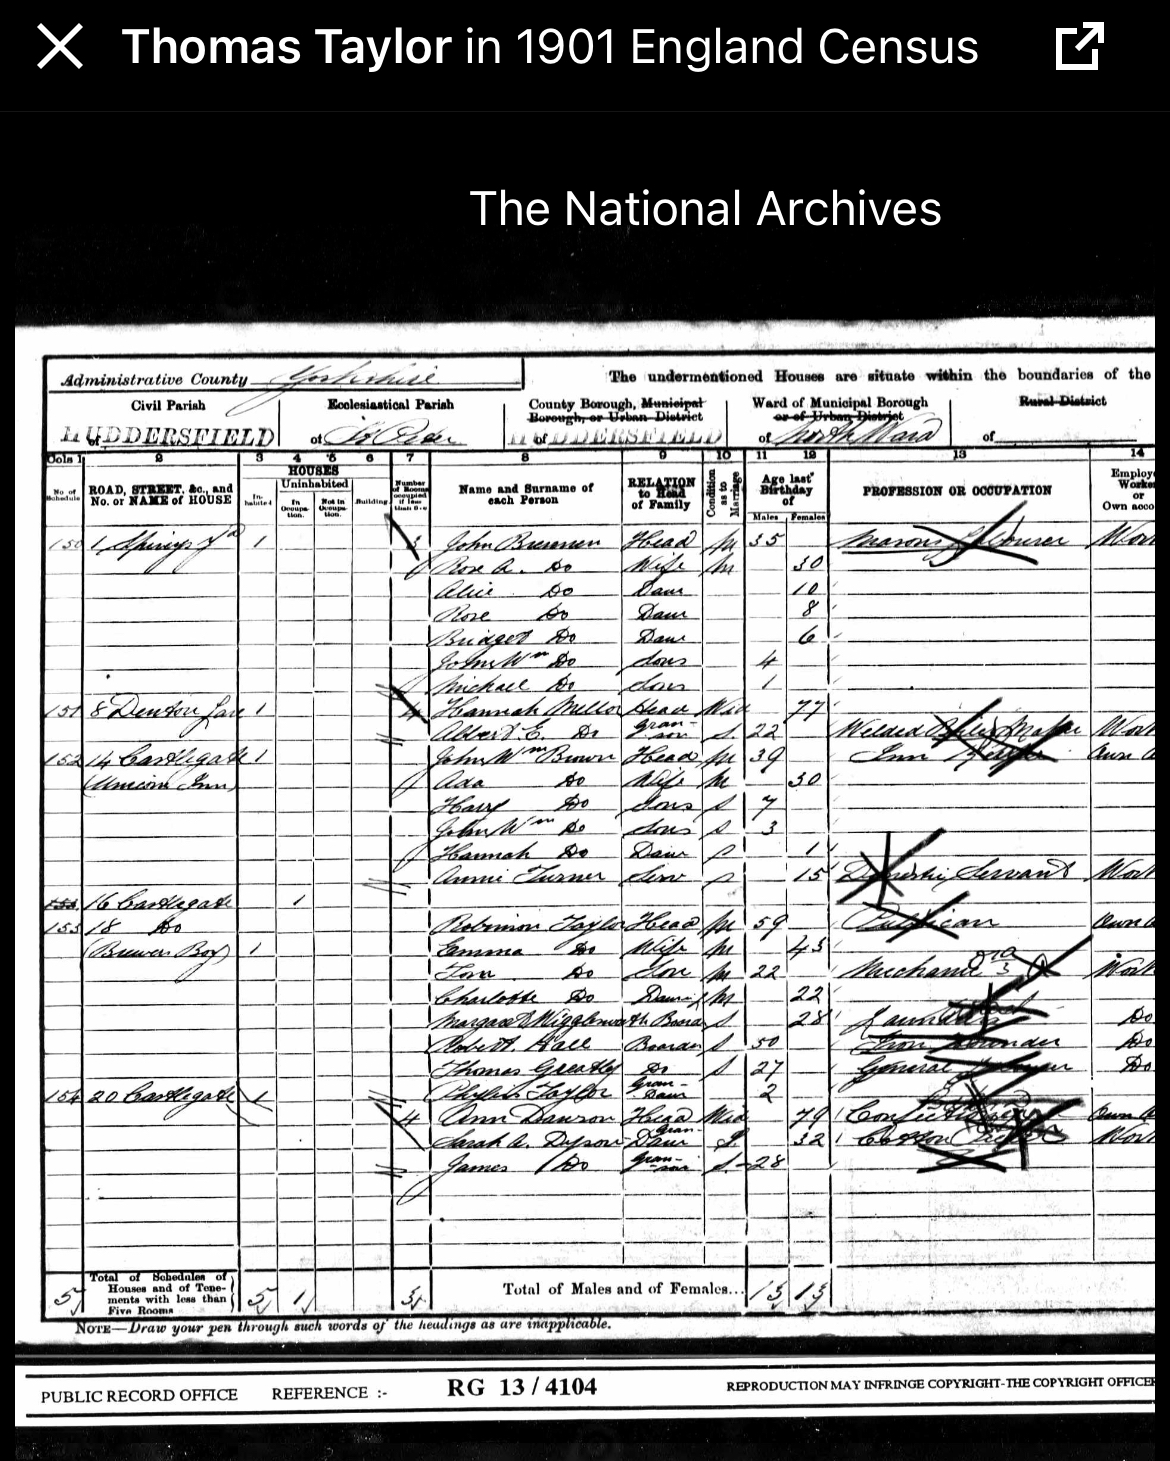 Thomas Taylor in 1901 England Census
The National Archives
Administrative County Yorkshire
The undermentioned Houses are situate within the boundaries of the
Civil Parish
of HUDDERSFIELD
Ecclesiastical Parish
of St Peter
County Borough, Municipal Borough, or Urban District
of HUDDERSFIELD
Ward of Municipal Borough or of Urban District
of North Ward
Rural District
of
Cols 1 2 3 4 5 6 7 8 9 10 11 12 13 14
No. of Schedule
ROAD, STREET, &c., and No. or NAME of HOUSE
HOUSES
In-habited
Uninhabited
In Occupa-tion.
Not in Occupa-tion.
Building.
Number of Rooms occupied if less than five
Name and Surname of each Person
RELATION to Head of Family
Condition as to Marriage
Age last Birthday of
Males Females
PROFESSION OR OCCUPATION
Employ
Worke
or
Own acco
150 1 Springs Yd 1 John Brennen Head M 35 Masons Labourer Wor
Rose A. Do Wife M 30
Alice Do Daur 10
Rose Do Daur 8
Bridget Do Daur 6
John Wm Do Sons 4
Michael Do Sons 1
151 8 Denton Lane 1 4 Hannah Mellor Head Wid 77
Albert E. Do Gran-son S 22 Welded Maker Wor
152 14 Castlegate 1 John Wm Brown Head M 39 Inn Keeper Own a
(Unicorn Inn) Ada Do Wife M 30
Harry Do Sons S 7
John Wm Do Sons S 3
Hannah Do Daur S 1
Annie Turner Serv S 15 Domestic Servant Wor
16 Castlegate 1
153 18 Do Robinson Taylor Head M 59 Publican Own a
(Brewers Boy) 1 Emma Do Wife M 43
Tom Do Son M 22 Mechanic Wor
Charlotte Do Daur M 22
Margaret Wigglesworth Board S 28 Do
Robert Hall Boarder S 50 Iron Do
Thomas Greatley Do S 27 General Labourer Do
Phyllis Taylor Gran-Daur 2
154 20 Castlegate 1 4 Ann Dawson Head Wid 79 Own a
Sarah A. Dyson Gran Daur S 32 Cotton Wor
James Do Gran-son S 28
5 Total of Schedules of Houses and of Tene-ments with less than Five Rooms 5 1 3 Total of Males and of Females... 13 13
NOTE—Draw your pen through such words of the headings as are inapplicable.
PUBLIC RECORD OFFICE REFERENCE :- RG 13 / 4104 REPRODUCTION MAY INFRINGE COPYRIGHT-THE COPYRIGHT OFFICE